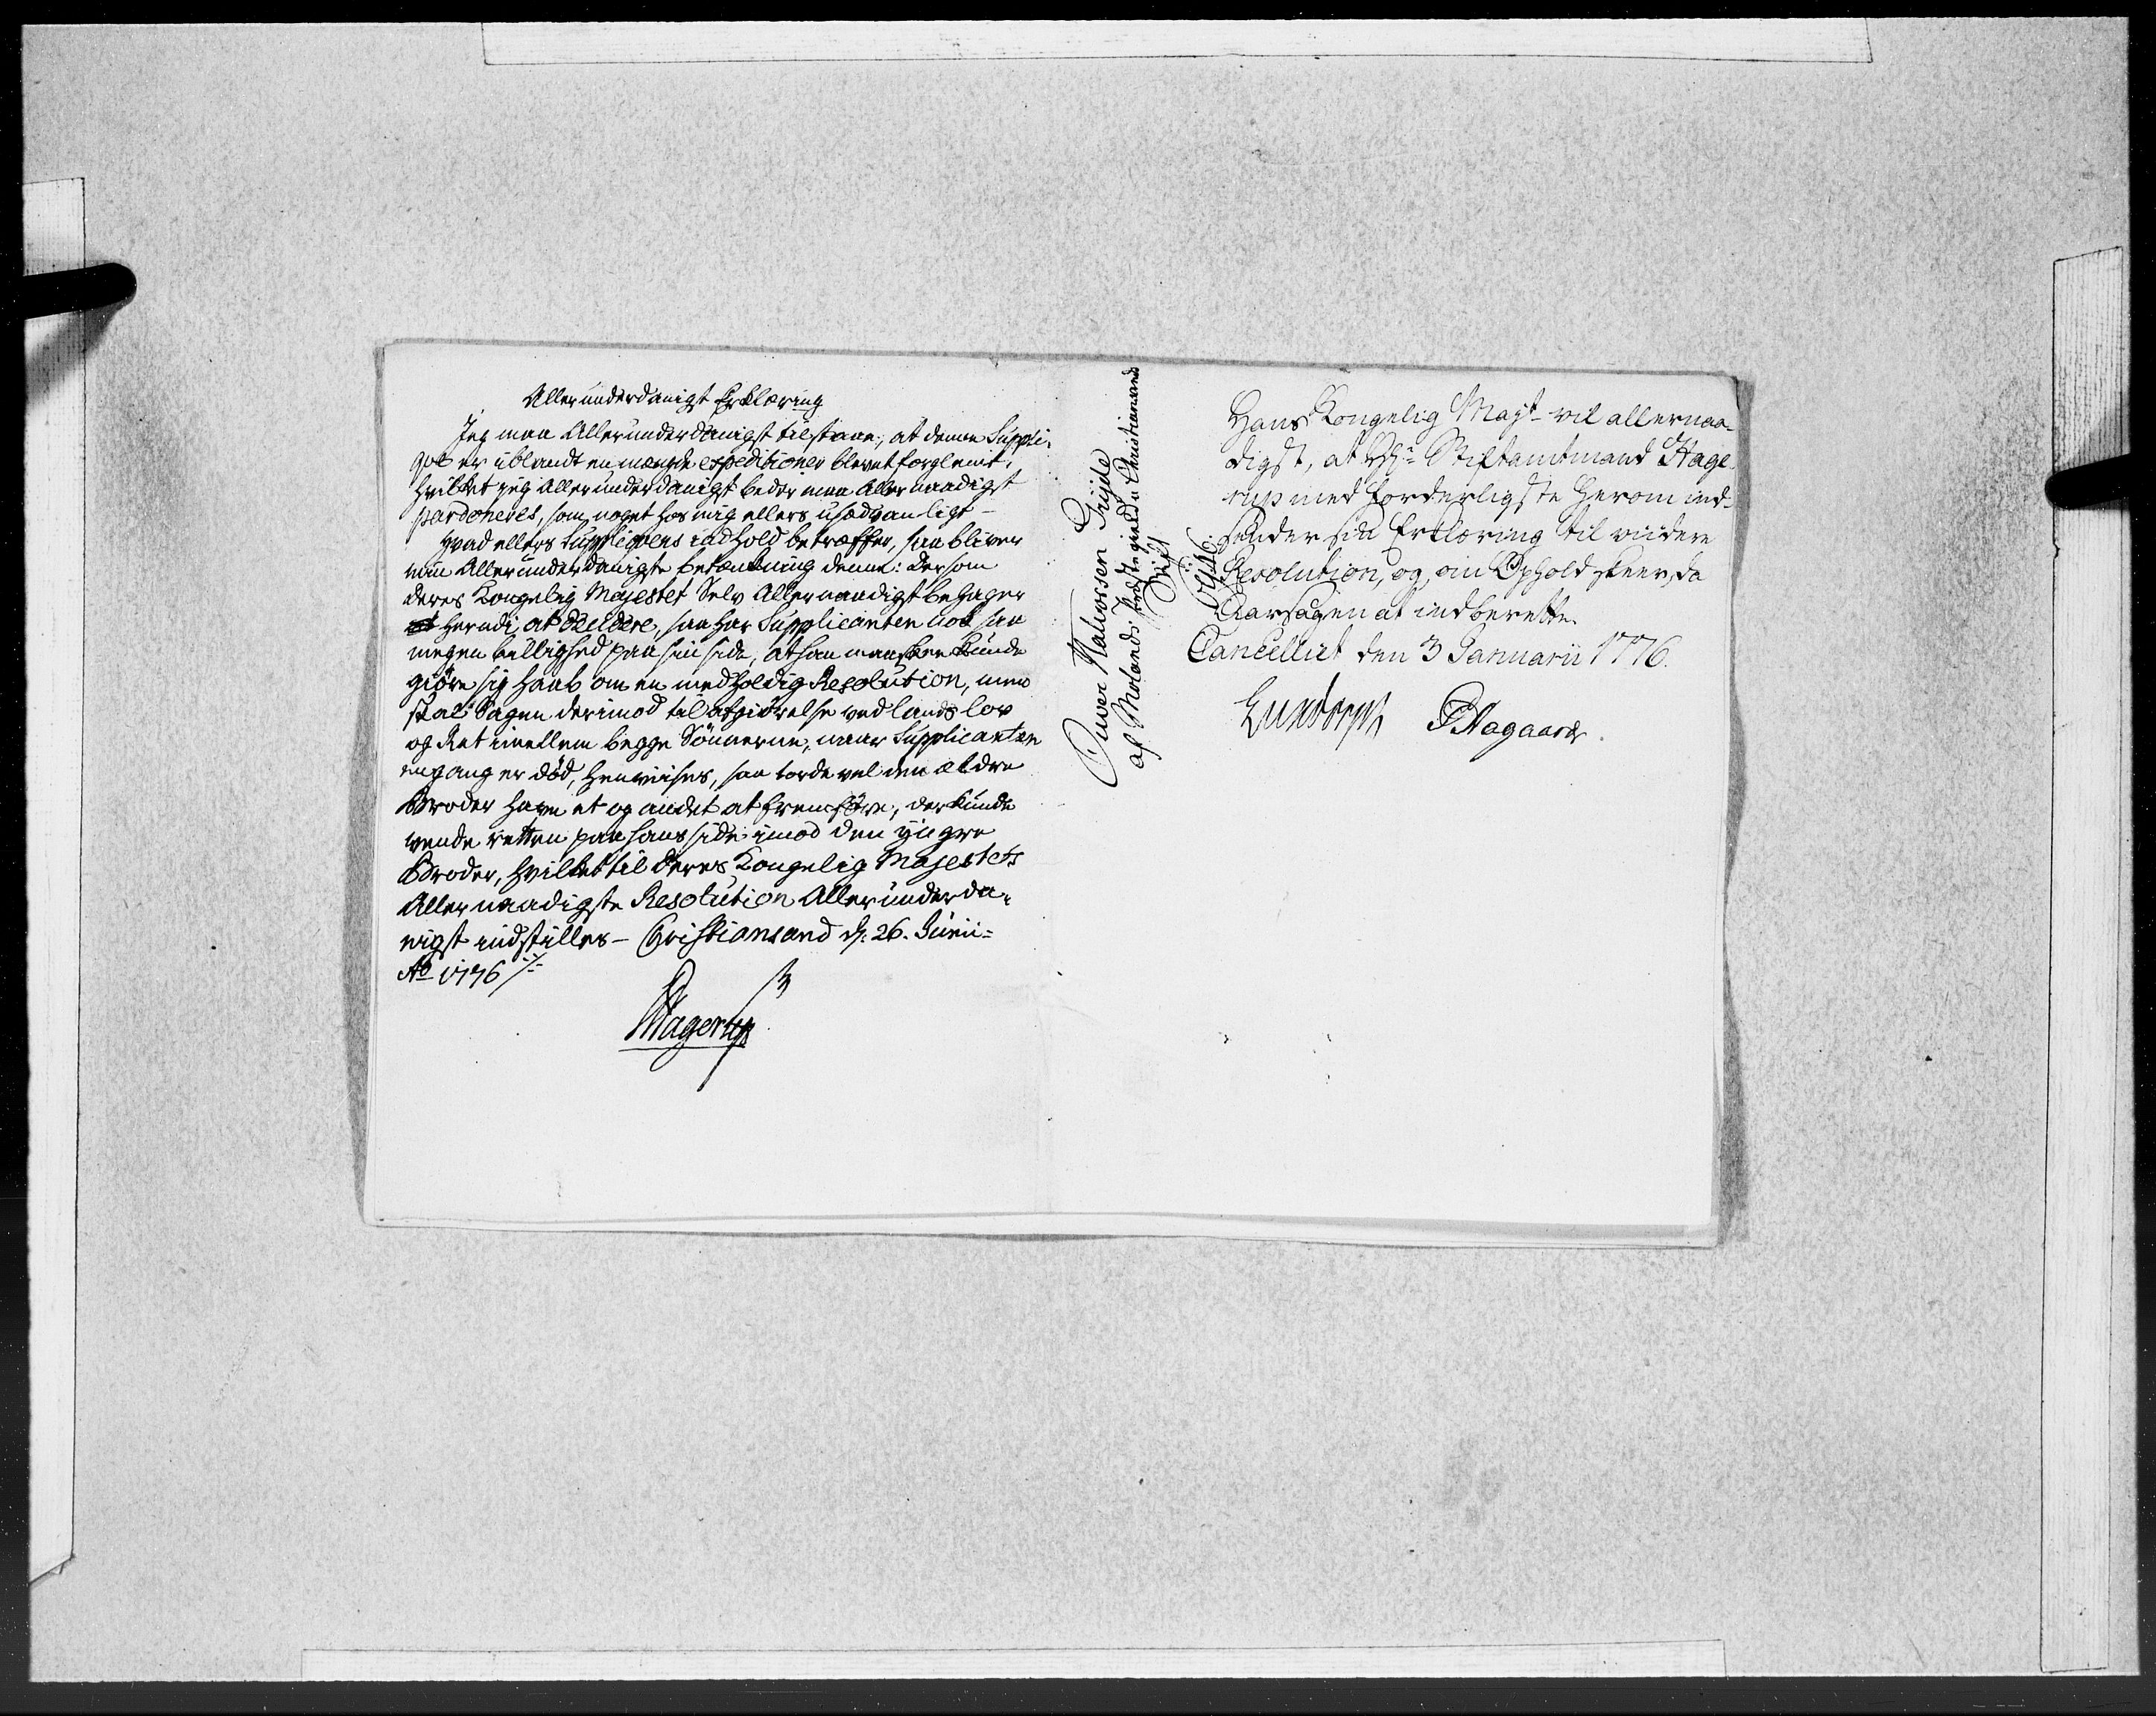 Allerunderdanigst Erklæring
Jeg maa Allerunderdanigst tilstaae, at denne Suppli-
qve er iblandt en mængde expeditioner blevet forglemt,
hvilket jeg Allerunderdanigst beder maa Allernaadigst
pardoneres, som noget hos mig ellers usædvanligt -
Hvad ellers Suppliqvens indhold betræffer, saa bliver
min Allerunderdanigste betænkning denne: dersom
deres Kongelig Majestet Selv Allernaadigst behager
herudi at decidere, saa har Supplicanten nok saa
megen billighed paa sin side, at han maaskee kunde
giøre sig haab om en medholdig Resolution, men
skal Sagen derimod til afgiørelse ved lands lov
og Ret imellem begge Sønnerne, naar Supplicanten
engang er død, henviises, saa torde vel den ældre
Broder have et og andet at fremføre, der kunde
vende retten paa hans side imod den yngre
Broder, hvilket til deres Kongelig Majestets
Allernaadigste Resolution Allerunderda-
nigst indstilles - Christiansand d: 26. Junii
Ao 1776
Hagerup
Oluer Halvorsen
af Molands Præstegield i Christiansands
Stift
Hans Kongelig Mayt vil allernaa-
digst, at Hr Stiftamtmand Hage-
rup med forderligste herom ind-
sender sin Erklæring til viidere
Resolution, og, om Ophold skeer, da
Aarsagen at indberette.
Cancelliet den 3 Januarii 1776.
Luxdorph Aagaard.